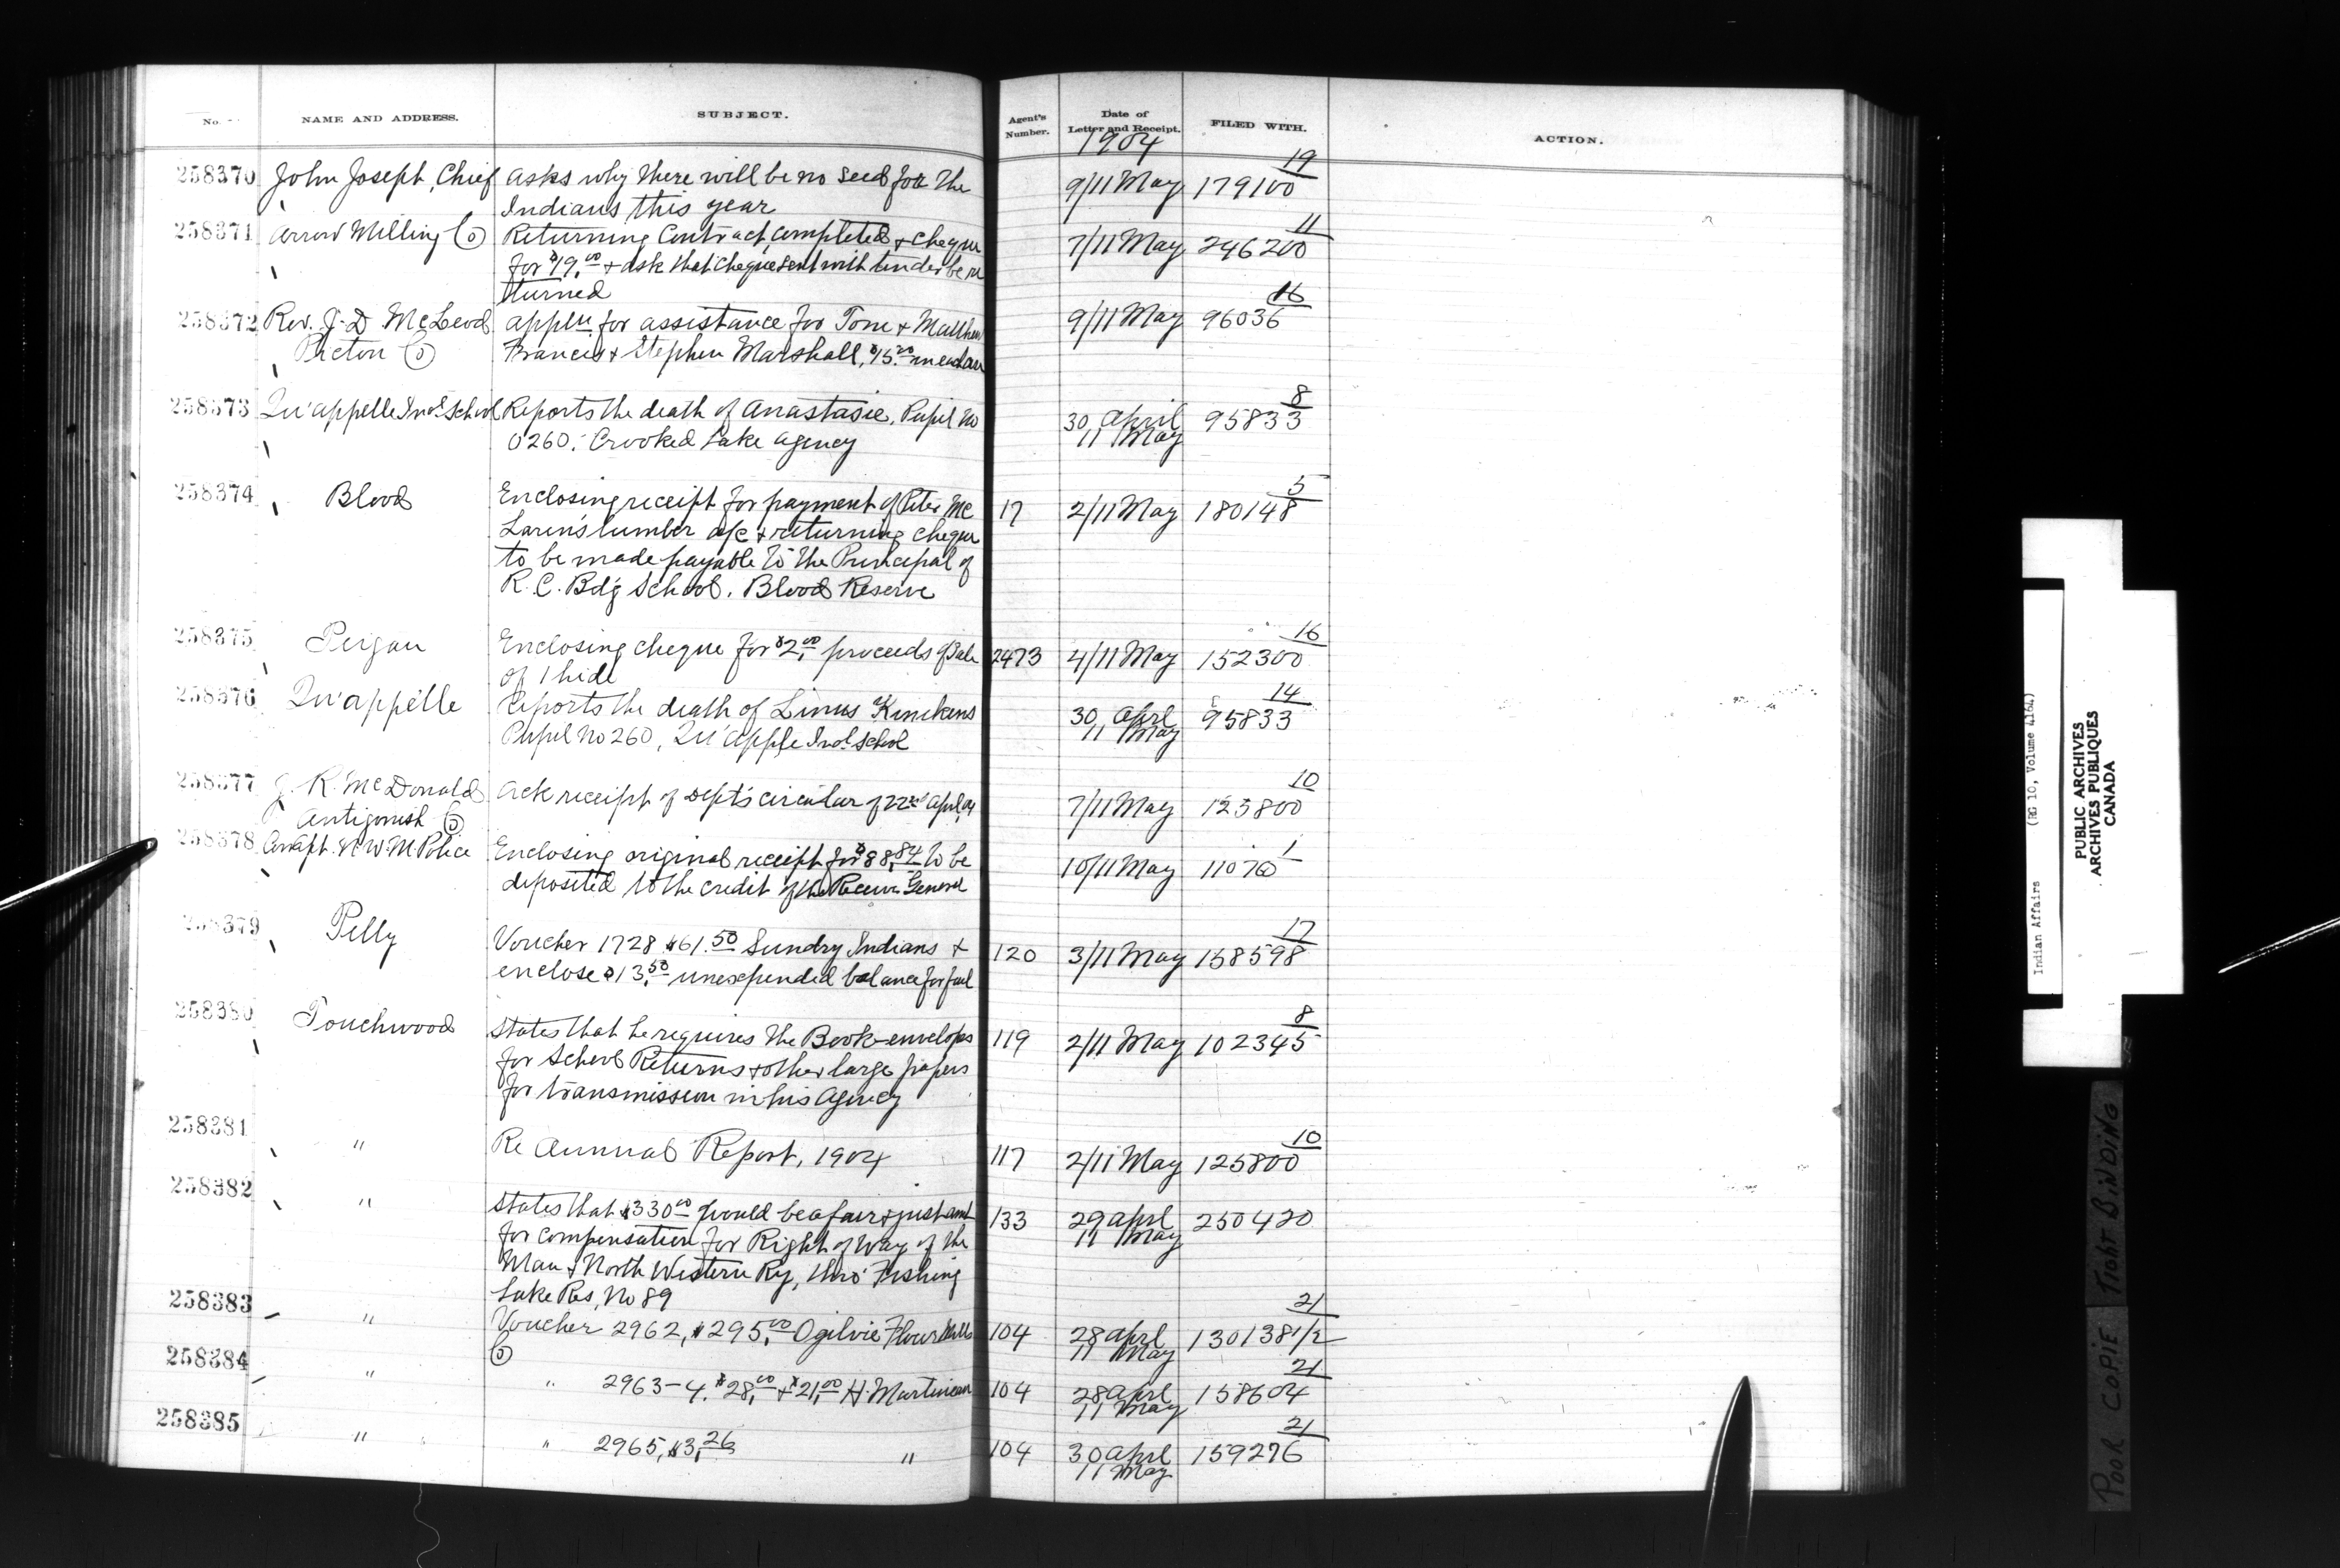 No. NAME AND ADDRESS. SUBJECT. Agent's Number. Date of Letter and Receipt. FILED WITH. ACTION.
1904
258370 John Joseph, Chief asks why there will be no seed for the 9/11 May 19 179100
Indians this year
258371 Arrow Milling Co Returning Contract, completed & cheque 7/11 May 11 246200
for $19.00 & ask that cheque sent with tender be re
turned
258372 Rev. J. D. McLeod appln for assistance for Tom & Matthew 9/11 May 16 96036
Picton Co Francis & Stephen Marshall, $15.00 in each
258373 Qu'appelle Indl School Reports the death of Anastasie, Pupil No 30 April 8 95833
0260. Crooked Lake Agency 11 May
258374 Blood Enclosing receipt for payment of Peter Mc 17 2/11 May 5 180148
Laren's lumber a/c & returning cheque
to be made payable to the Principal of
R. C. Bdg School, Blood Reserve
258375 Peigan Enclosing cheque for $2.00 proceeds of Sale 2473 4/11 May 16 152300
of 1 hide
258376 Qu'appelle Reports the death of Linus Kinikens 30 April 14 95833
Pupil No 260, Qu'apple Indl School 11 May
258377 J. R. McDonald Ack receipt of Dept's circular of 22nd April, 04 7/11 May 10 123800
Antigonish Co
258378 Compt. N W M Police Enclosing original receipt for $88.84 to be 10/11 May 1 11070
deposited to the credit of the Receiver General
258379 Pelly Voucher 1728 $61.50 Sundry Indians & 120 3/11 May 17 158598
enclose $13.50 unexpended balance for fuel
258380 Touchwood States that he requires the Book-envelops 119 2/11 May 8 102345
for School Returns & other large papers
for transmission in his Agency
258381 " Re Annual Report, 1904 117 2/11 May 10 125800
258382 " States that $330.00 would be a fair & just amt 133 29 April 250420
for compensation for Right of Way of the 11 May
Man & North Western Ry, thro' Fishing
Lake Res, No 89
258383 " Voucher 2962, $295.00 Ogilvie Flour Mills 104 28 April 21 130138 1/2
Co 11 May
258384 " " 2963-4. $28.00 & $21.00 H. Martineau 104 28 April 21 158604
11 May
258385 " " 2965, $3.26 " 104 30 April 21 159276
11 May
Indian Affairs (RG 10, Volume 4164)
PUBLIC ARCHIVES
ARCHIVES PUBLIQUES
CANADA
POOR COPIE TIGHT BINDING